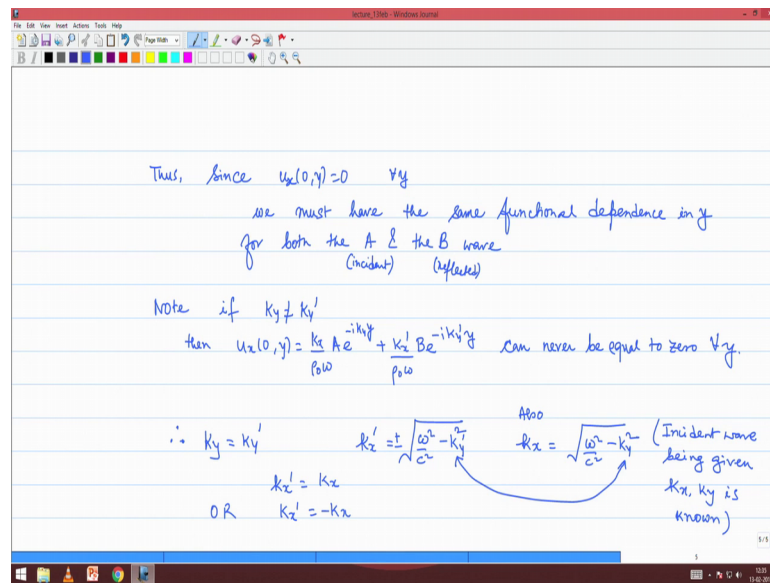 lecture_13feb - Windows Journal
File Edit View Insert Actions Tools Help
Page Width
B I
Thus, Since u_x(0,y)=0 ∀y
we must have the same functional dependence in y
for both the A & the B wave
(incident) (reflected)
Note if Ky ≠ Ky'
then u_x(0,y) = \frac{k_x}{ρ_0ω} A e^{-ik_y y} + \frac{k_x'}{ρ_0ω} B e^{-ik_y' y} can never be equal to zero ∀y.
∴ Ky = Ky' k_x' = ± \sqrt{\frac{ω^2}{c^2} - k_y'^2} Also k_x = \sqrt{\frac{ω^2}{c^2} - k_y^2} (Incident wave being given Kx, Ky is known)
k_x' = k_x
OR k_x' = -k_x
5/5
5
12:35
13-02-20